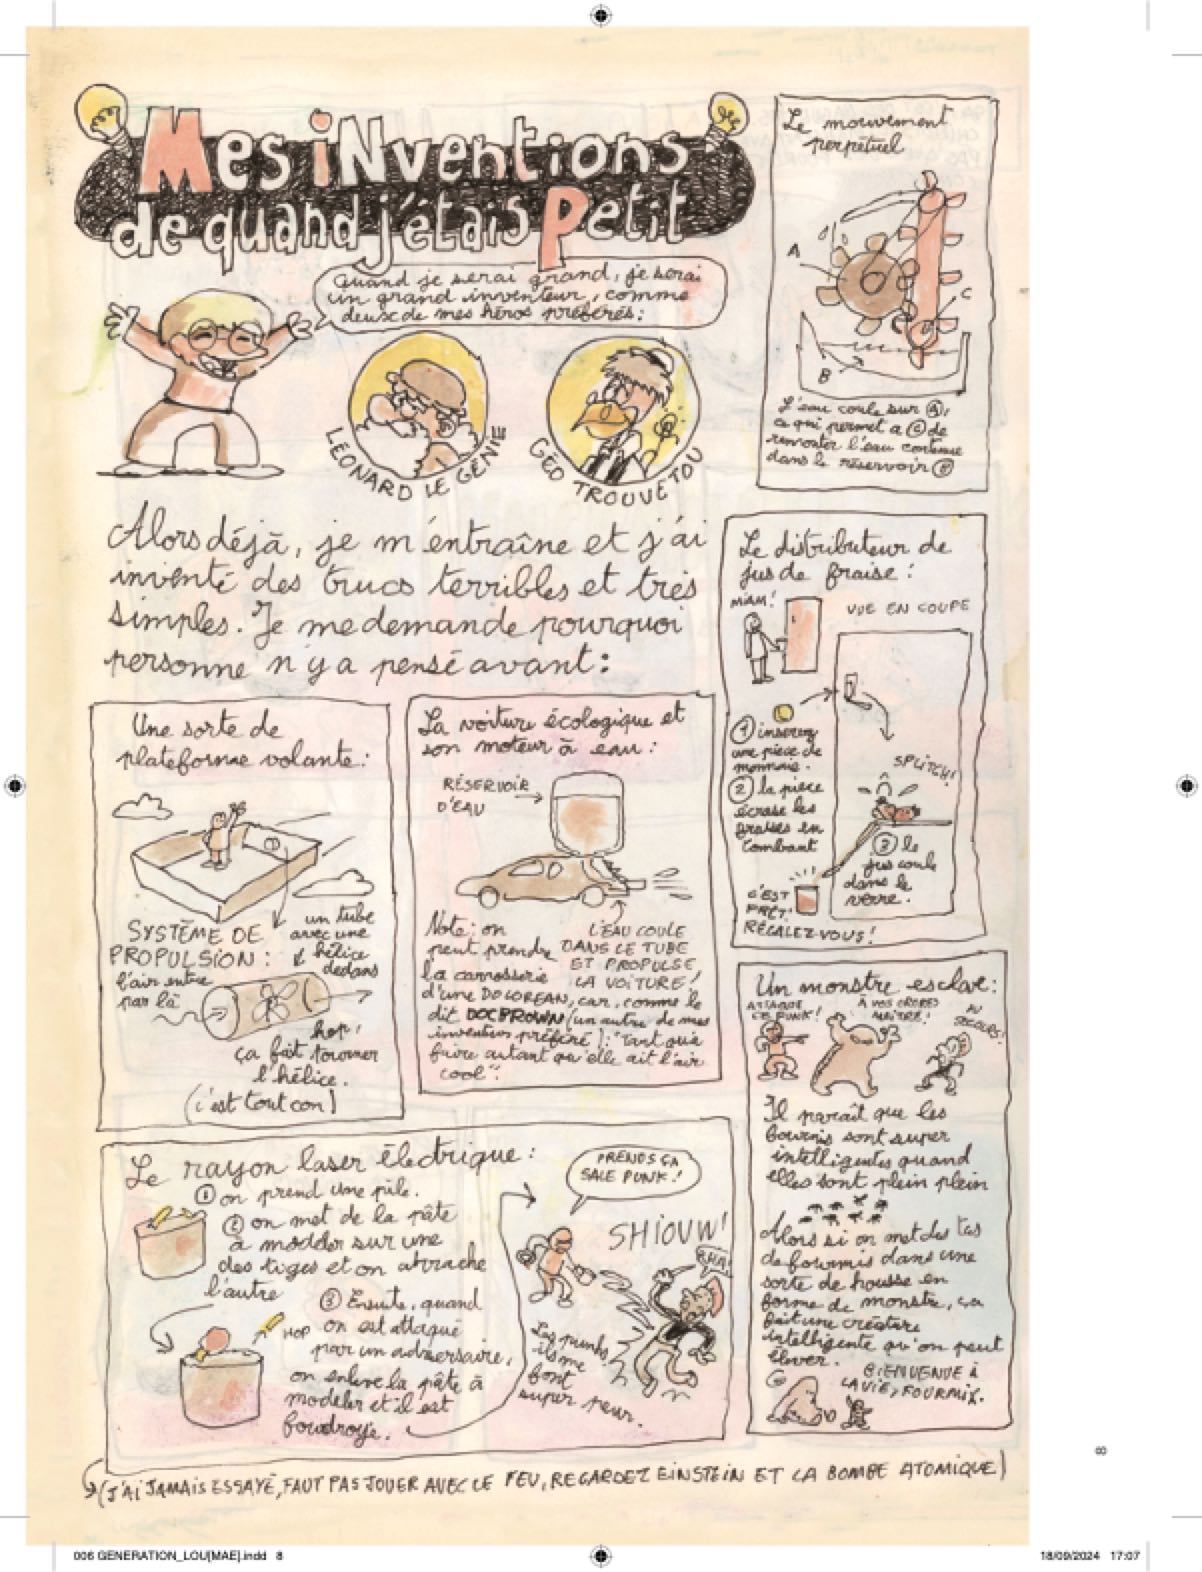 Mes iNventions
de quand j'étais Petit
Quand je serai grand, je serai
un grand inventeur, comme
deux de mes héros préférés :
LÉONARD LE GÉNIE
GÉO TROUVETOU
Alors déjà, je m'entraîne et j'ai
inventé des trucs terribles et très
simples. Je me demande pourquoi
personne n'y a pensé avant :
Le mouvement
perpétuel
A
C
B
L'eau coule sur A,
ce qui permet a C de
remonter l'eau contenue
dans le réservoir B
Le distributeur de
jus de fraise :
MIAM !
VUE EN COUPE
1 insérez
une pièce de
monnaie.
2 la pièce
écrase les
fraises en
tombant
SPLITCH!
3 le
jus coule
dans le
verre.
C'EST
PRÊT!
RÉGALEZ-VOUS !
Une sorte de
plateforme volante :
SYSTÈME DE
PROPULSION :
un tube
avec une
hélice
dedans
l'air entre
par là
hop,
ça fait tourner
l'hélice.
(c'est tout con)
La voiture écologique et
son moteur à eau :
RÉSERVOIR
D'EAU
L'EAU COULE
DANS LE TUBE
ET PROPULSE
LA VOITURE !
Note : on
peut prendre
la carrosserie
d'une DOLOREAN, car, comme le
dit DOC BROWN (un autre de mes
inventeurs préféré) : "Tant qu'à
faire autant qu'elle ait l'air
cool".
Un monstre esclave :
ATTAQUE
CE PUNK !
À VOS ORDRES
MAÎTRE !
AU
SECOURS !
Il paraît que les
fourmis sont super
intelligentes quand
elles sont plein plein
Alors si on met des tas
de fourmis dans une
sorte de housse en
forme de monstre, ça
fait une créature
intelligente qu'on peut
élever.
BIENVENUE À
LA VIE, FOURMIX.
Le rayon laser électrique :
1 on prend une pile.
2 on met de la pâte
à modeler sur une
des tiges et on arrache
l'autre
HOP
3 Ensuite, quand
on est attaqué
par un adversaire,
on enlève la pâte à
modeler et il est
foudroyé.
PRENDS ÇA
SALE PUNK !
SHIOUW!
Les punks,
ils me
font
super peur.
(J'AI JAMAIS ESSAYÉ, FAUT PAS JOUER AVEC LE FEU, REGARDEZ EINSTEIN ET LA BOMBE ATOMIQUE)
8
006 GENERATION_LOU[MAE].indd 8
18/09/2024 17:07